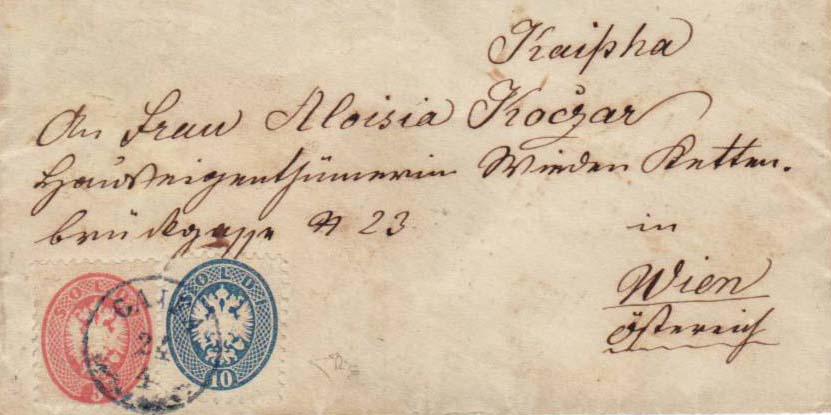 Kaipha
An Frau Aloisia Koczar
Hauseigenthümerin Wieden Ketten-
brückgasse N 23 in
Wien
Österreich
SOLDI
SOLDI
10